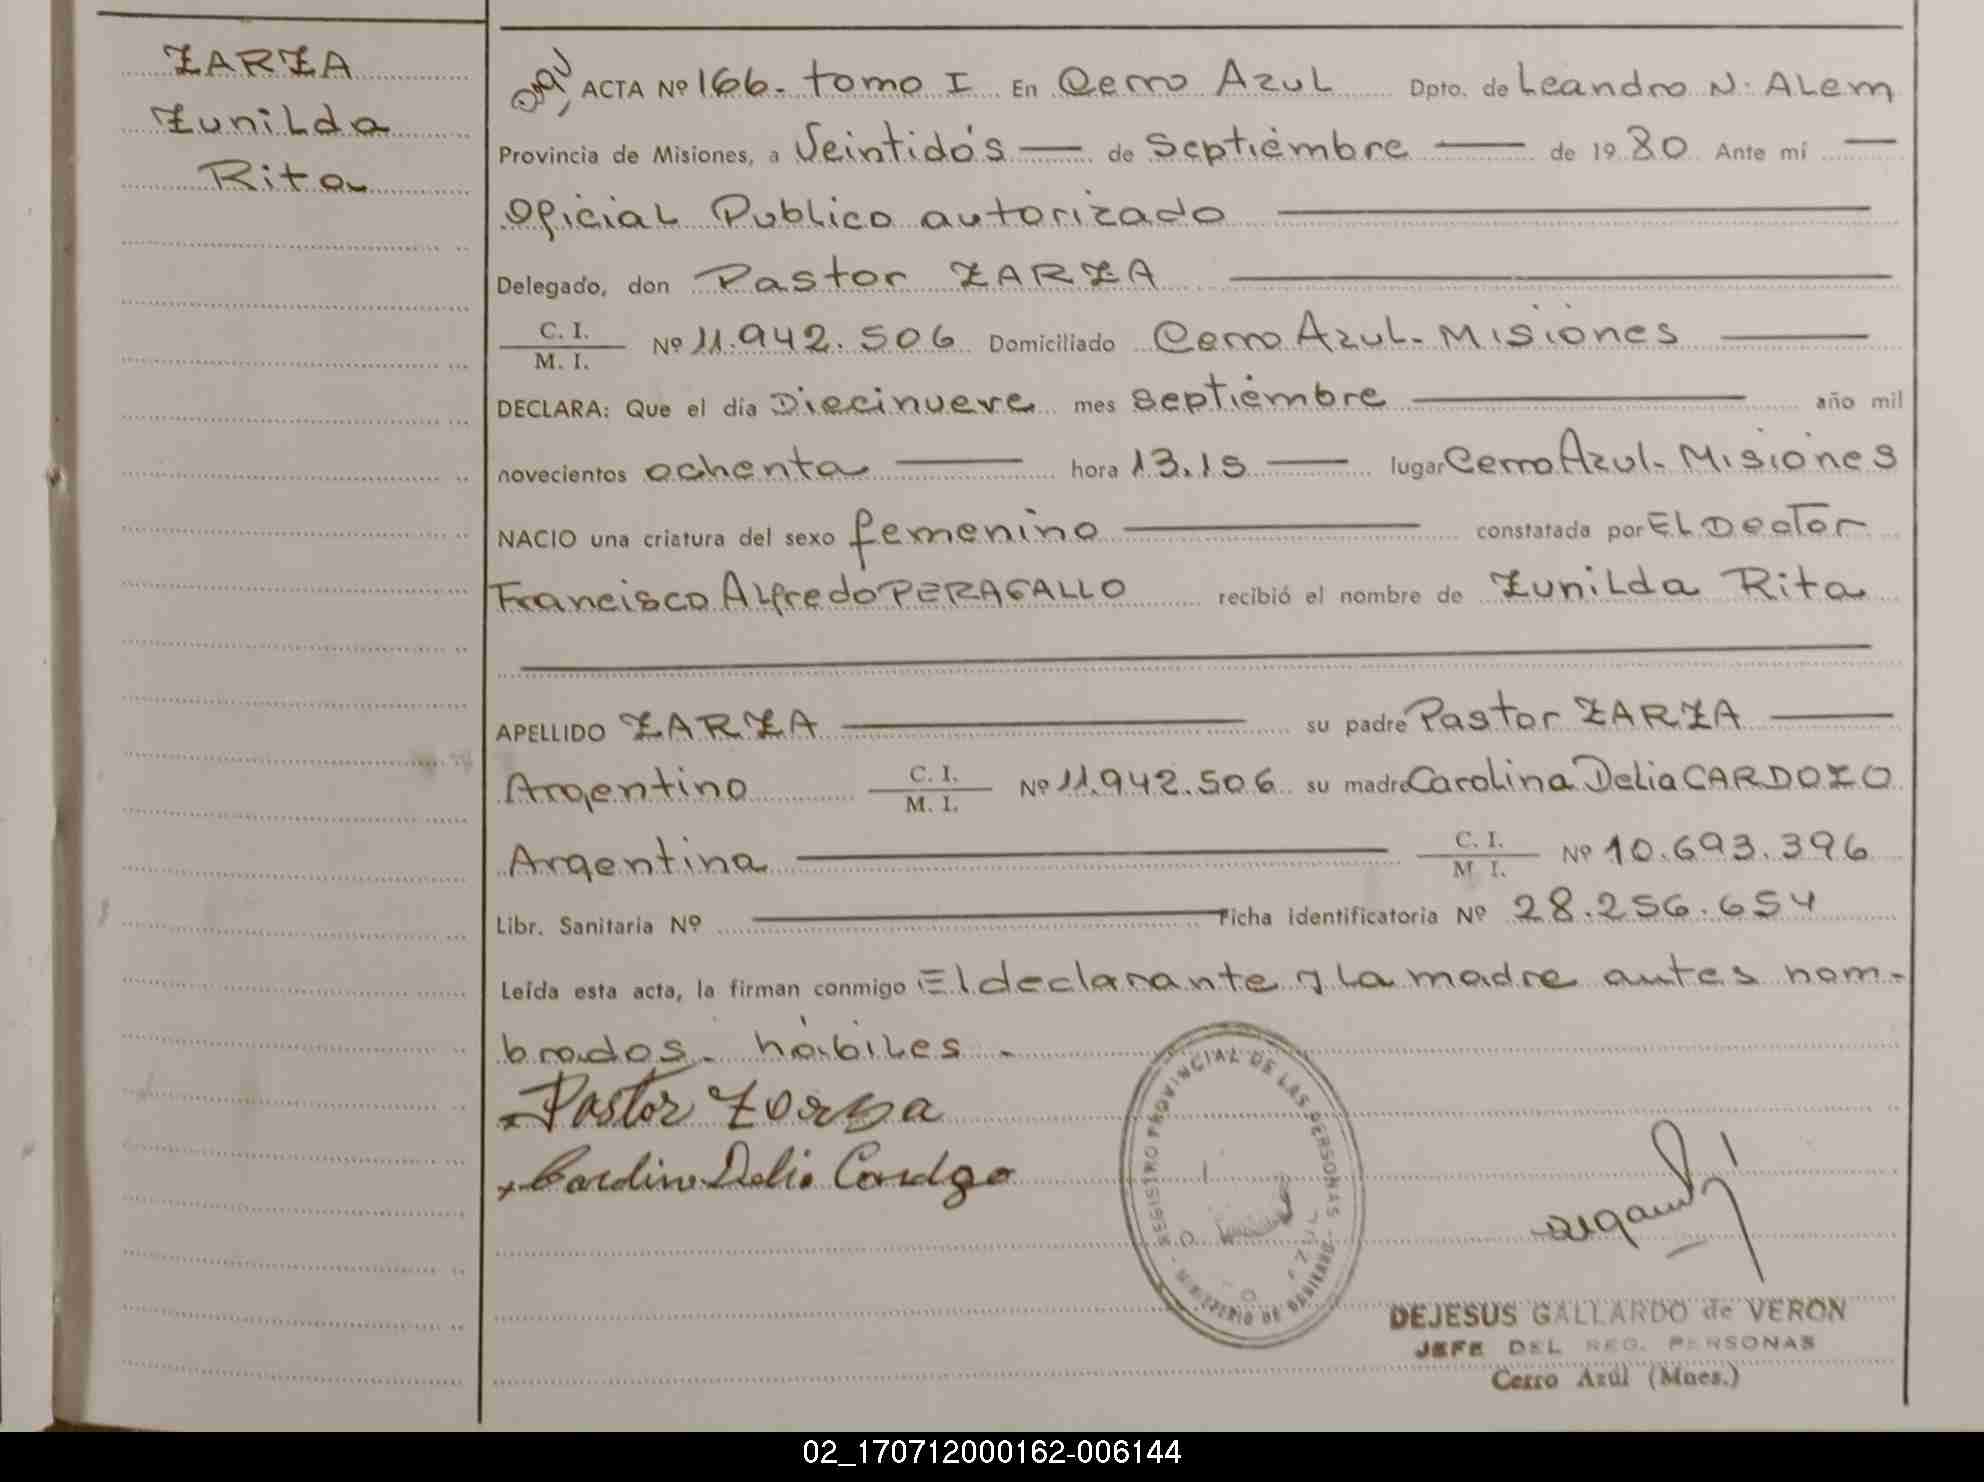 ZARZA
Zunilda
Rita
ACTA Nº 166. tomo I En Cerro Azul Dpto. de Leandro N. Alem
Provincia de Misiones, a Veintidós — de Septiembre — de 1980 Ante mí —
Oficial Publico autorizado
Delegado, don Pastor ZARZA
C. I.
M. I.
Nº 11.942.506 Domiciliado Cerro Azul- Misiones
DECLARA: Que el día Diecinueve mes septiembre año mil
novecientos ochenta hora 13.15 lugar Cerro Azul- Misiones
NACIO una criatura del sexo femenino constatada por EL Doctor
Francisco Alfredo PERAGALLO recibió el nombre de Zunilda Rita
APELLIDO ZARZA su padre Pastor ZARZA
Argentino C. I. M. I. Nº 11.942.506 su madre Carolina Delia CARDOZO
Argentina C. I. M. I. Nº 10.693.396
Libr. Sanitaria Nº Ficha identificatoria Nº 28.256.654
Leída esta acta, la firman conmigo El declarante y la madre antes nom-
brados- hábiles-
Pastor Zarza
Carolina Delia Cardozo
REGISTRO PROVINCIAL DE LAS PERSONAS - MINISTERIO DE GOBIERNO
DEJESUS GALLARDO de VERON
JEFE DEL REG. PERSONAS
Cerro Azúl (Mnes.)
02_170712000162-006144